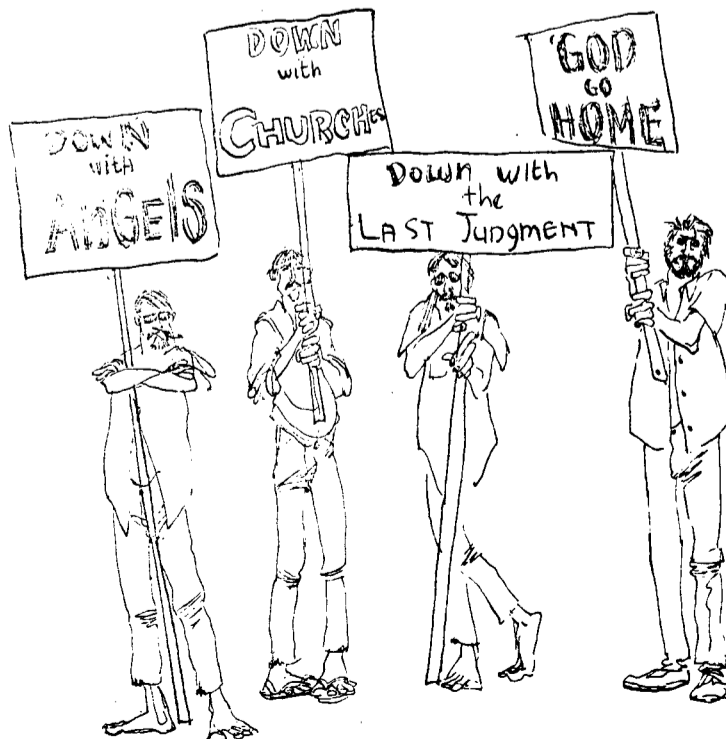 DOWN
with
ANGElS
DOWN
with
CHURCHes
DOWN with
the
LAST JUDGMENT
'GOD
GO
HOME